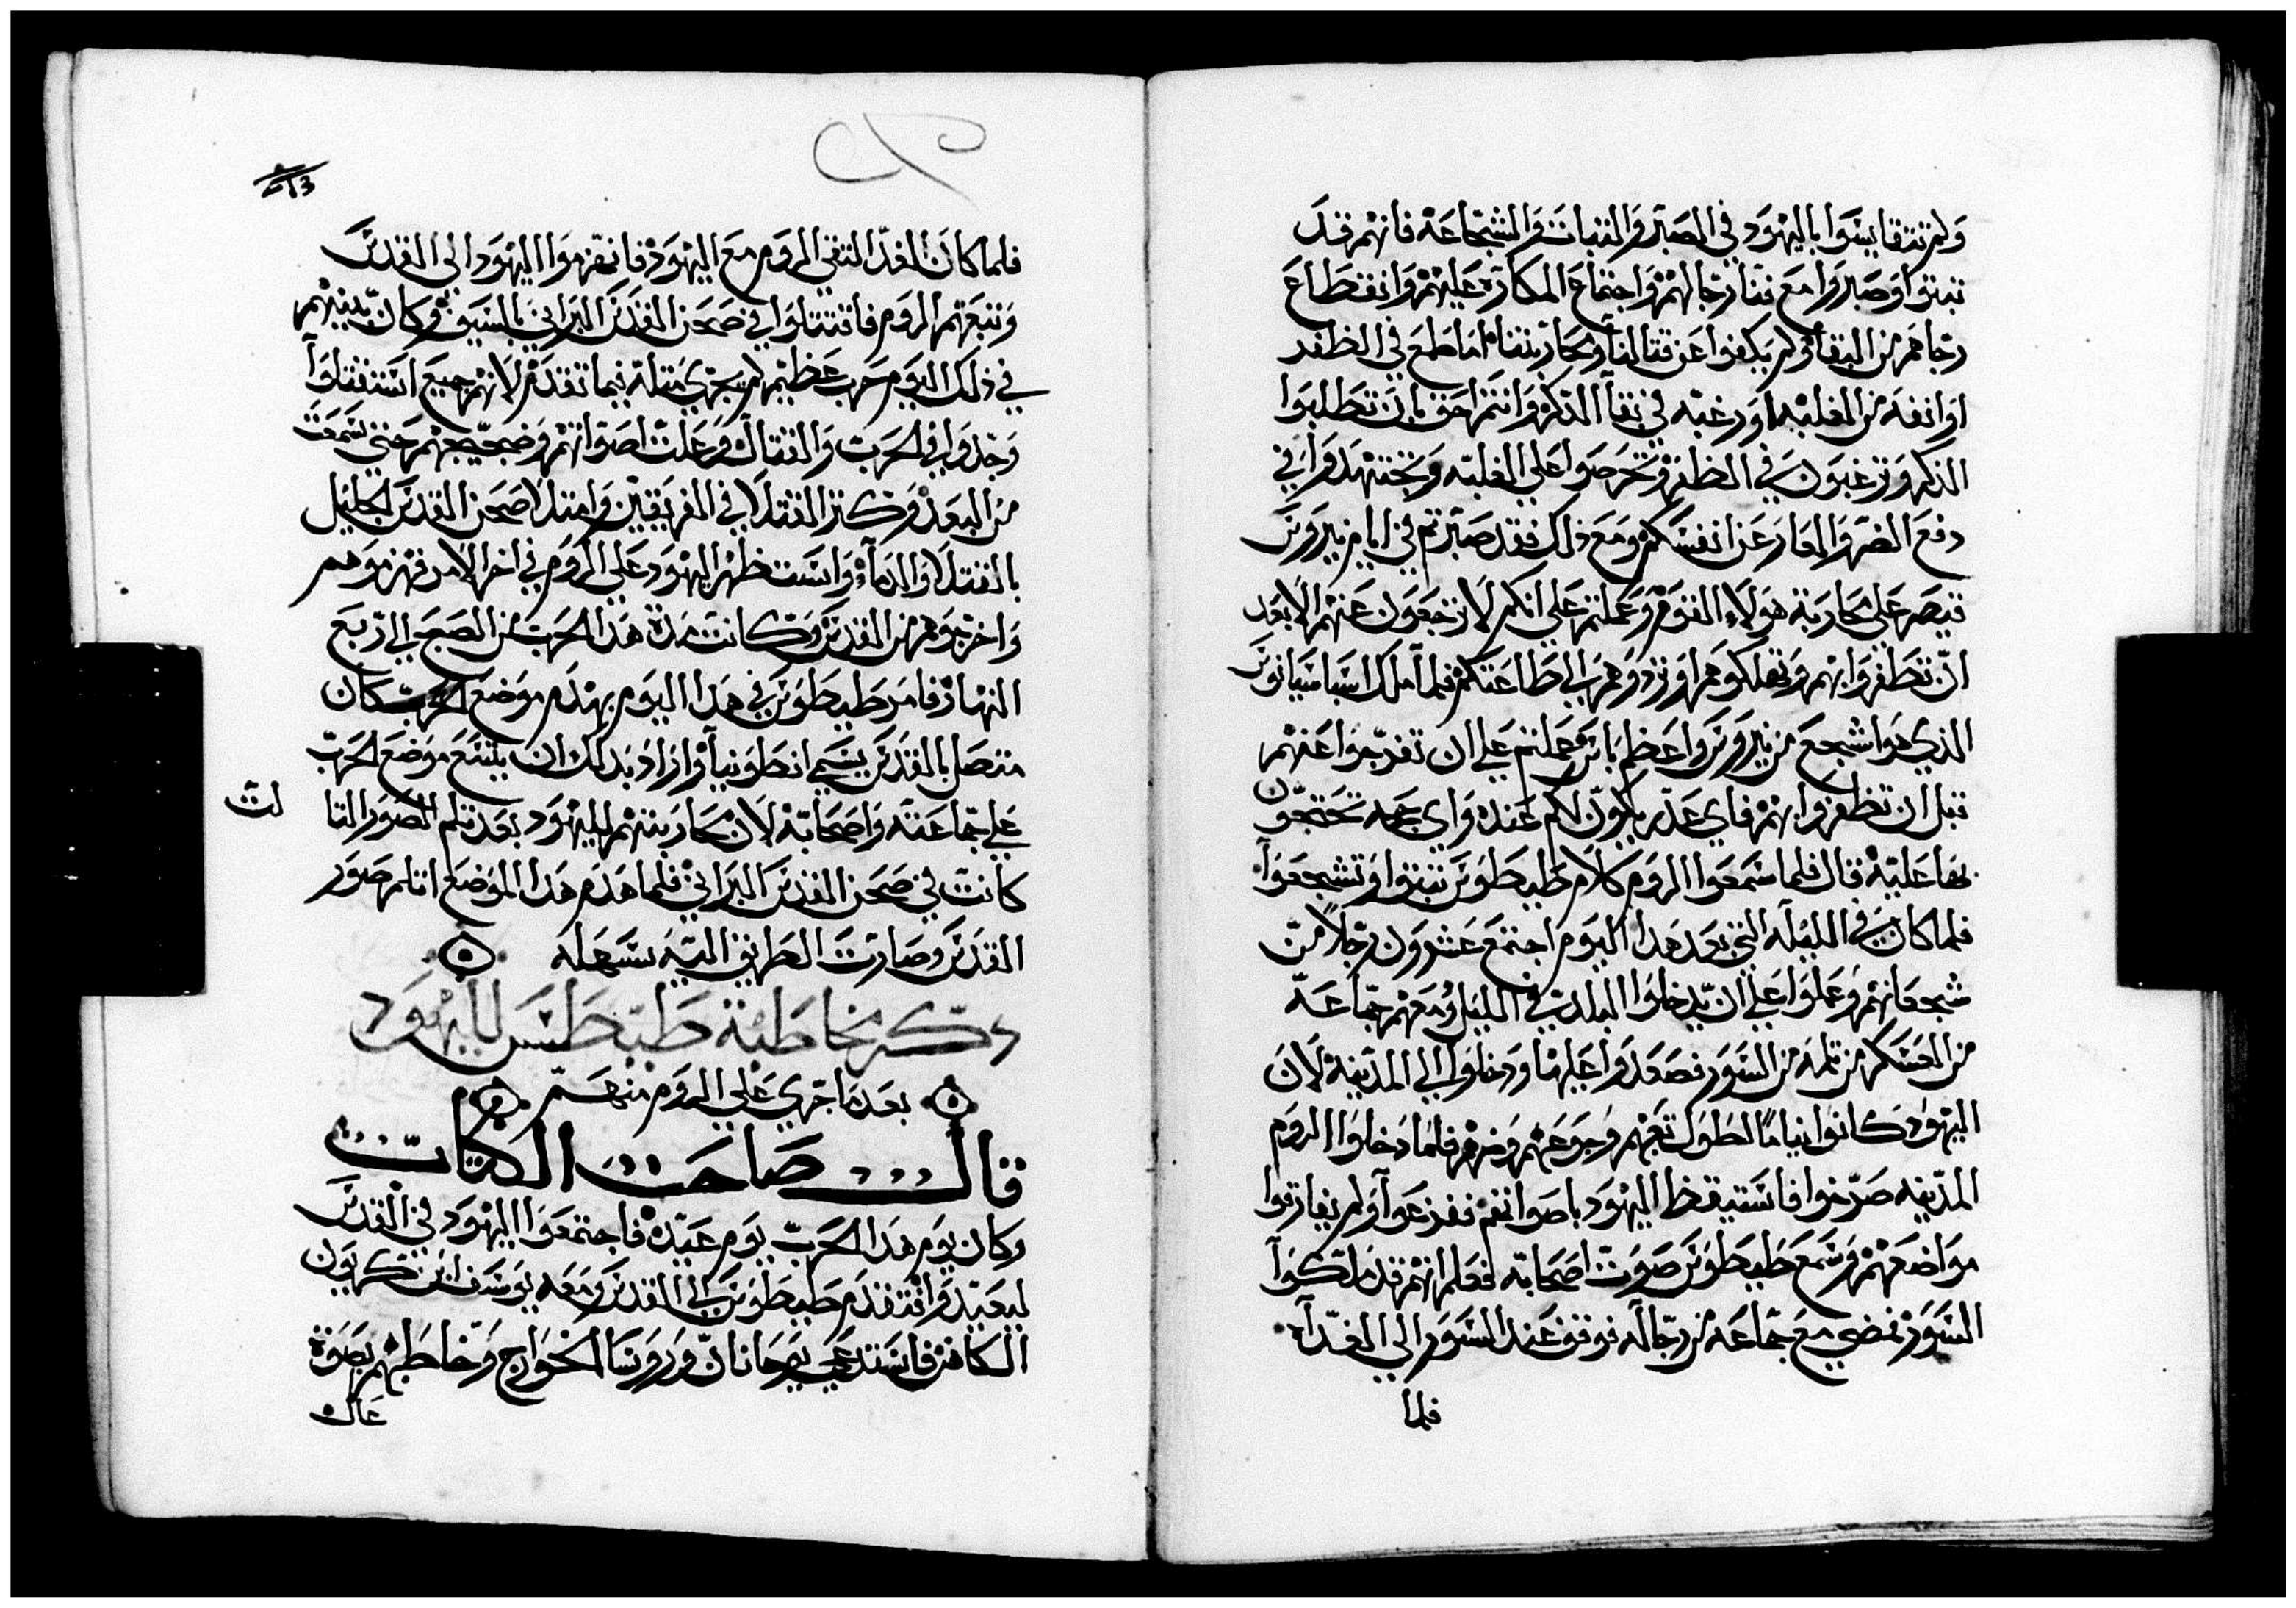 ولم تتقايسوا باليهود في الصبر والثبات والشجاعه فانهم قد
ثبتوا وصبروا مع فنا رجالهم واجتماع المكاره عليهم وانقطاع
رجاهم من البقا ولم يكفوا عن قتالنا ومحاربتنا اما طمع في الظفر
او انفه من الغلبه او رغبه في بقا الذكر وانتم احق بان تطلبوا
الذكر وترغبون في الظفر وتحرصوا علي الغلبه وتجتهدوا في
دفع الضر والعار عن انفسكم ومع ذلك فقد صبرتم في ايام نيرون
قيصر علي محاربة هولاء القوم وعملتم علي انكم لا ترجعون عنهم الا بعد
ان تظفروا بهم وتهلكوهم او تردوهم الي طاعتكم فلما ملك اسباسيانوس
الذي هو اشجع من نيرون واعظم باس عملتم علي ان تفرجوا عنهم
قبل ان تظفروا بهم فاي عذر يكون لكم عنده واي حجه تحتجون
بها عليه قال فلما سمعوا الروم كلام طيطوس تثبتوا وتشجعوا
فلما كان في الليله التي بعد هدا اليوم اجتمع عشرون رجلا من
شجعانهم وعملوا علي ان يدخلوا البلد في الليل ومعهم جماعة
من العسكر من ثلمه من السور فصعدوا عليها ودخلوا الي المدينه لان
اليهود كانوا نياما لطول تعبهم وجوعهم وضرهم فلما دخلوا الروم
المدينه صرخوا فاستيقظ اليهود باصواتهم ففزعوا ولم يفارقوا
مواضعهم وسمع طيطوس صوت اصحابه فعلم انهم قد ملكوا
السور فمضي مع جماعه من رجاله فوقف عند السور الي الغدا
فلما
فلما كان الغد التقي الروم مع اليهود فانهزموا اليهود الي القدس
وتبعهم الروم فاقتتلوا في صحن القدس البراني بالسيوف وكان بينهم
في ذلك اليوم حرب عظيم لم يجري مثله فيما تقدم لانهم جميع استقتلوا
وجدوا في الحرب والقتال وعلت اصواتهم وضجيجهم حتي سمعت
من البعد وكثر القتلا في الفريقين وامتلا صحن القدس الجليل
بالقتلا والدماء واستظهر اليهود علي الروم في اخر الامر فهزموهم
واخرجوهم من القدس وكانت مدة هدا الحرب من الصبح الي ربع
النهار فامر طيطوس في هدا اليوم بهدم موضع الحرب كان
متصل بالقدس يسمي انطونيا واراد بدلك ان يتسع موضع الحرب
علي جماعته واصحابه لان محاربتهم لليهود بعد ثلم الصور الثا لث
كانت في صحن القدس البراني فلما هدم هدا الموضع انثلم صور
القدس وصارت الطريق اليه سهله
دكر مخاطبة طيطس لليهود
بعد ما جري علي الروم منهم
قال صاحب الكتاب
وكان يوم هدا الحرب يوم عيد فاجتمعوا اليهود في القدس
ليعيدوا فتقدم طيطوس الي القدس ومعه يوسف ابن كريون
الكاهن فاستدعي يوحانان وروسا الخوارج وخاطبهم بصوة
عال